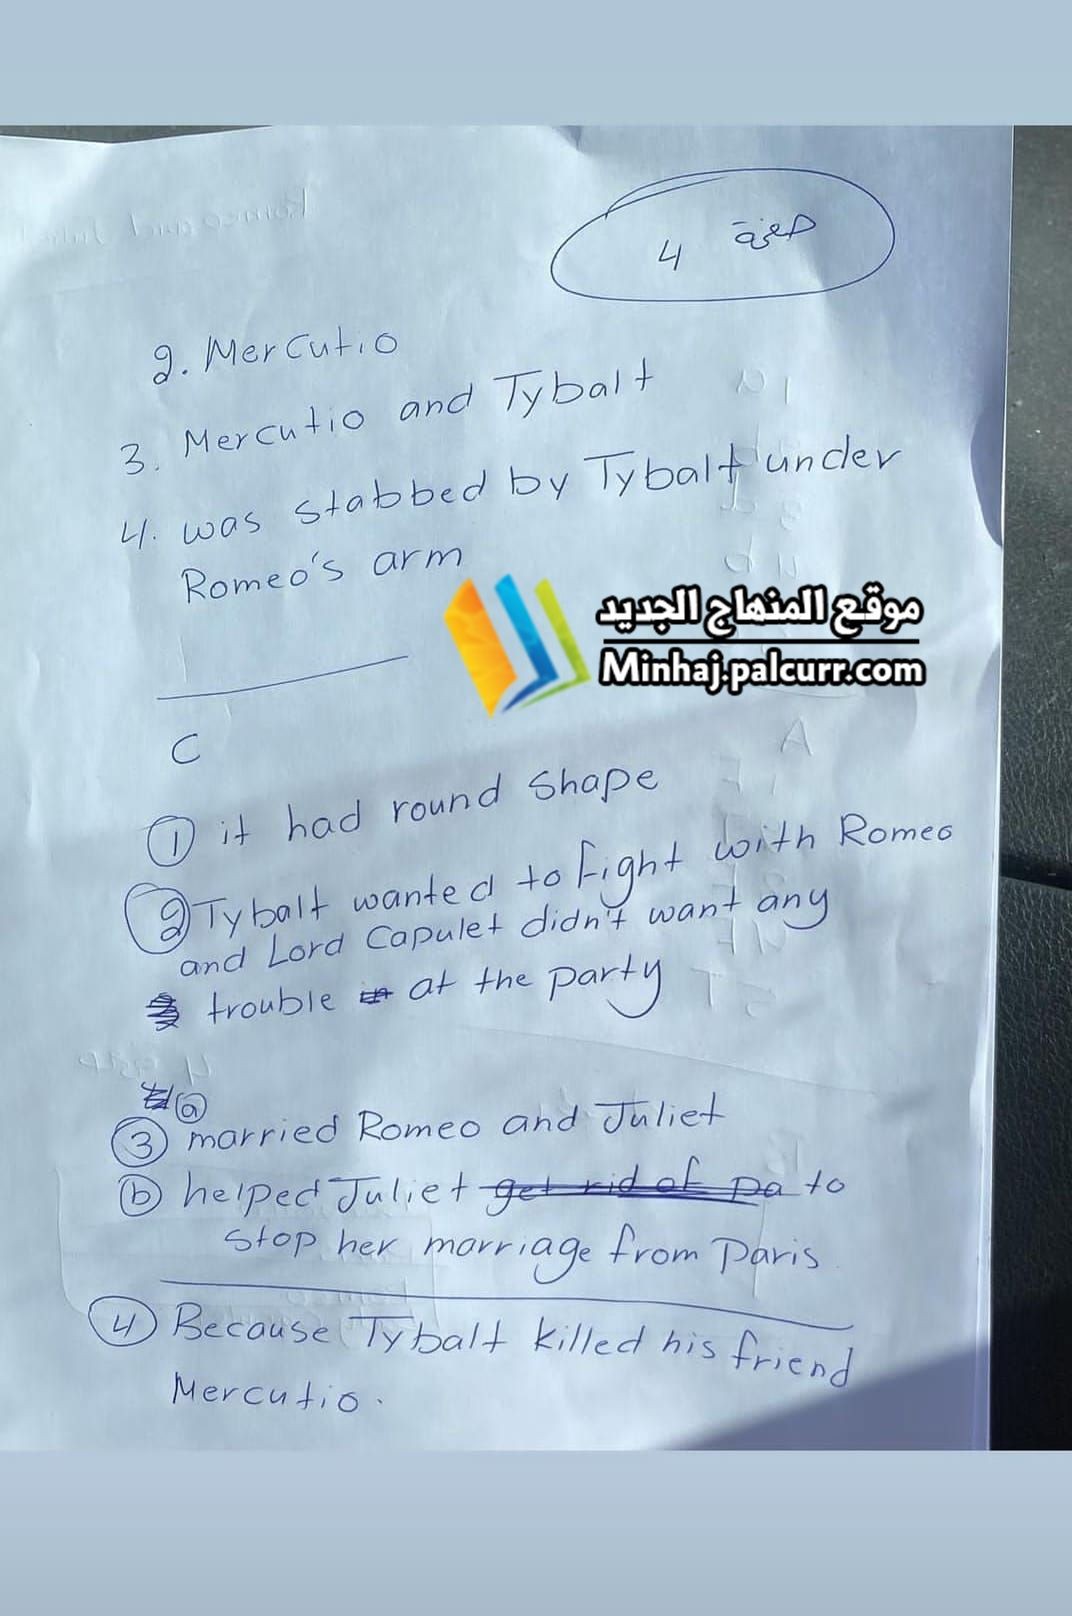 صفحة 4
2. Mercutio
3. Mercutio and Tybalt
4. was stabbed by Tybalt under
Romeo's arm
موقع المنهاج الجديد
Minhaj.palcurr.com
C
① it had round shape
② Tybalt wanted to fight with Romeo
and Lord Capulet didn't want any
trouble at the party
ⓐ
③ married Romeo and Juliet
ⓑ helped Juliet get rid of pa to
stop her marriage from Paris
④ Because Tybalt killed his friend
Mercutio.